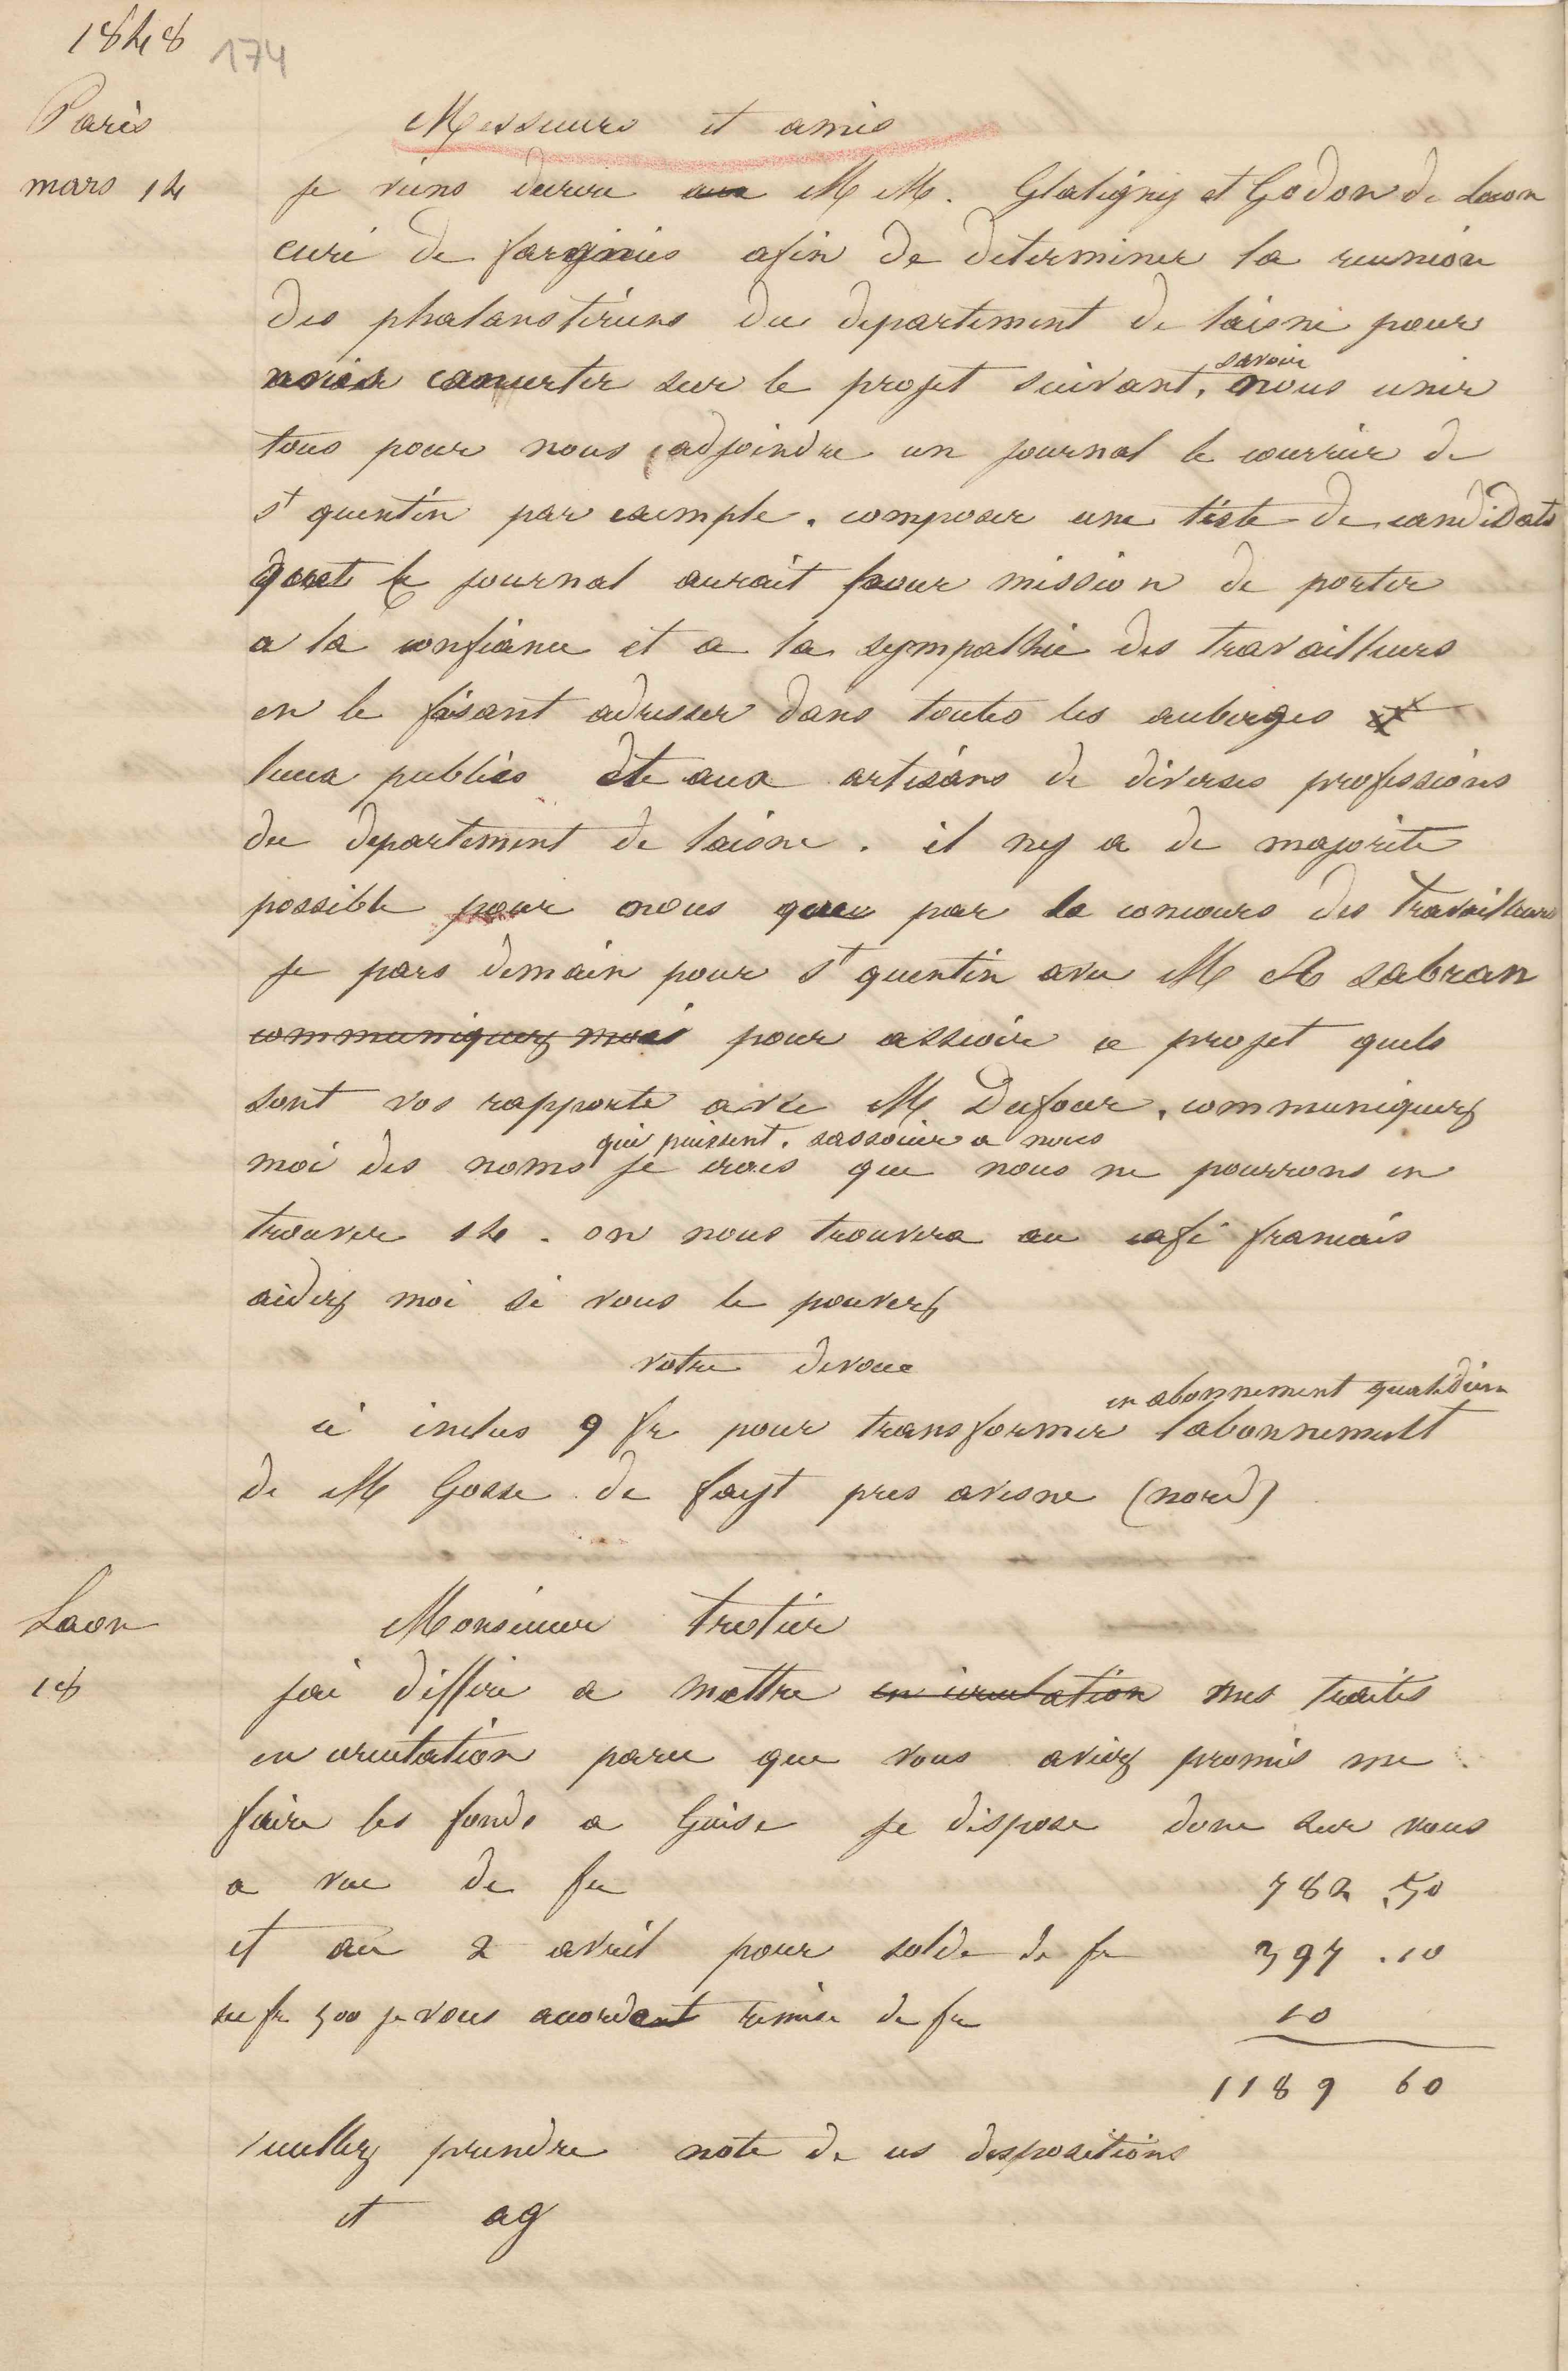 1848 174
Paris
Messieurs et amis
mars 14
je viens decrire aux M M. Glatigny et Godon de Laon
curé de fargnies afin de determiner la reunion
des phalanstériens du departement de laisne pour
concerter sur le projet suivant. savoir nous unir
tous pour nous adjoindre un journal le courrier de
st quentin par exemple. composer une liste de candidats
dont le journal aurait pour mission de porter
a la confiance et a la sympathie des travailleurs
en le fesant adresser dans toutes les auberges
lieux publics et aux artisans de diverses professions
du departement de laisne. il ny a de majorite
possible pour nous que par le concours des travailleurs
je pars demain pour st quentin avec M A sabran
communiquez moi pour asseoir ce projet quels
sont vos rapports avec M Dufour. communiquez
qui puissent. sassocier a nous
moi des noms je crois que nous ne pourrons en
trouver 14. on nous trouvera au café francais
aidez moi si vous le pouvez
votre devoue
en abonnement quotidien
ci inclus 9 fr pour transformer labonnement
de M Gosse de fayt pres avesne (nord)
Laon
Monsieur Trotier
18
jai differé a mettre en circulation mes traites
en circulation parce que vous aviez promis me
faire les fonds a Guise je dispose donc sur vous
a vue de fr 782.50
et au 2 avril pour solde de fr 397.10
sur fr 500 je vous accordant remise de fr 10
1189 60
veuillez prendre note de ces dispositions
et ag